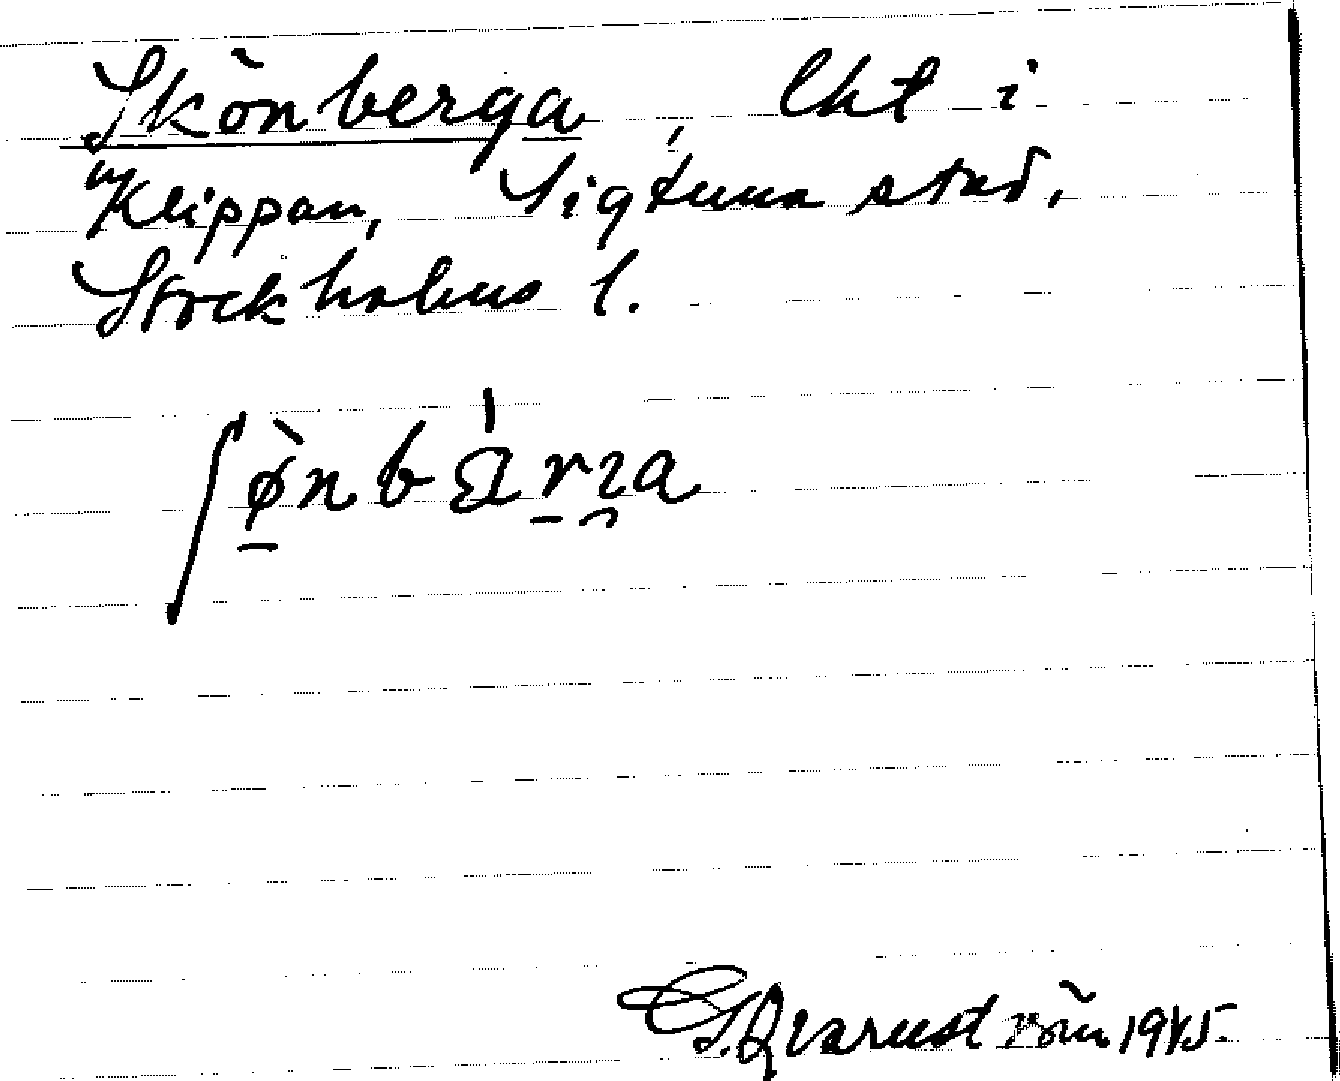 Skönberga, lht i
kv Klippan, Sigtuna stad,
Stockholms l.
ʃø̀nbárɪa
G. Qvarnström 1945.